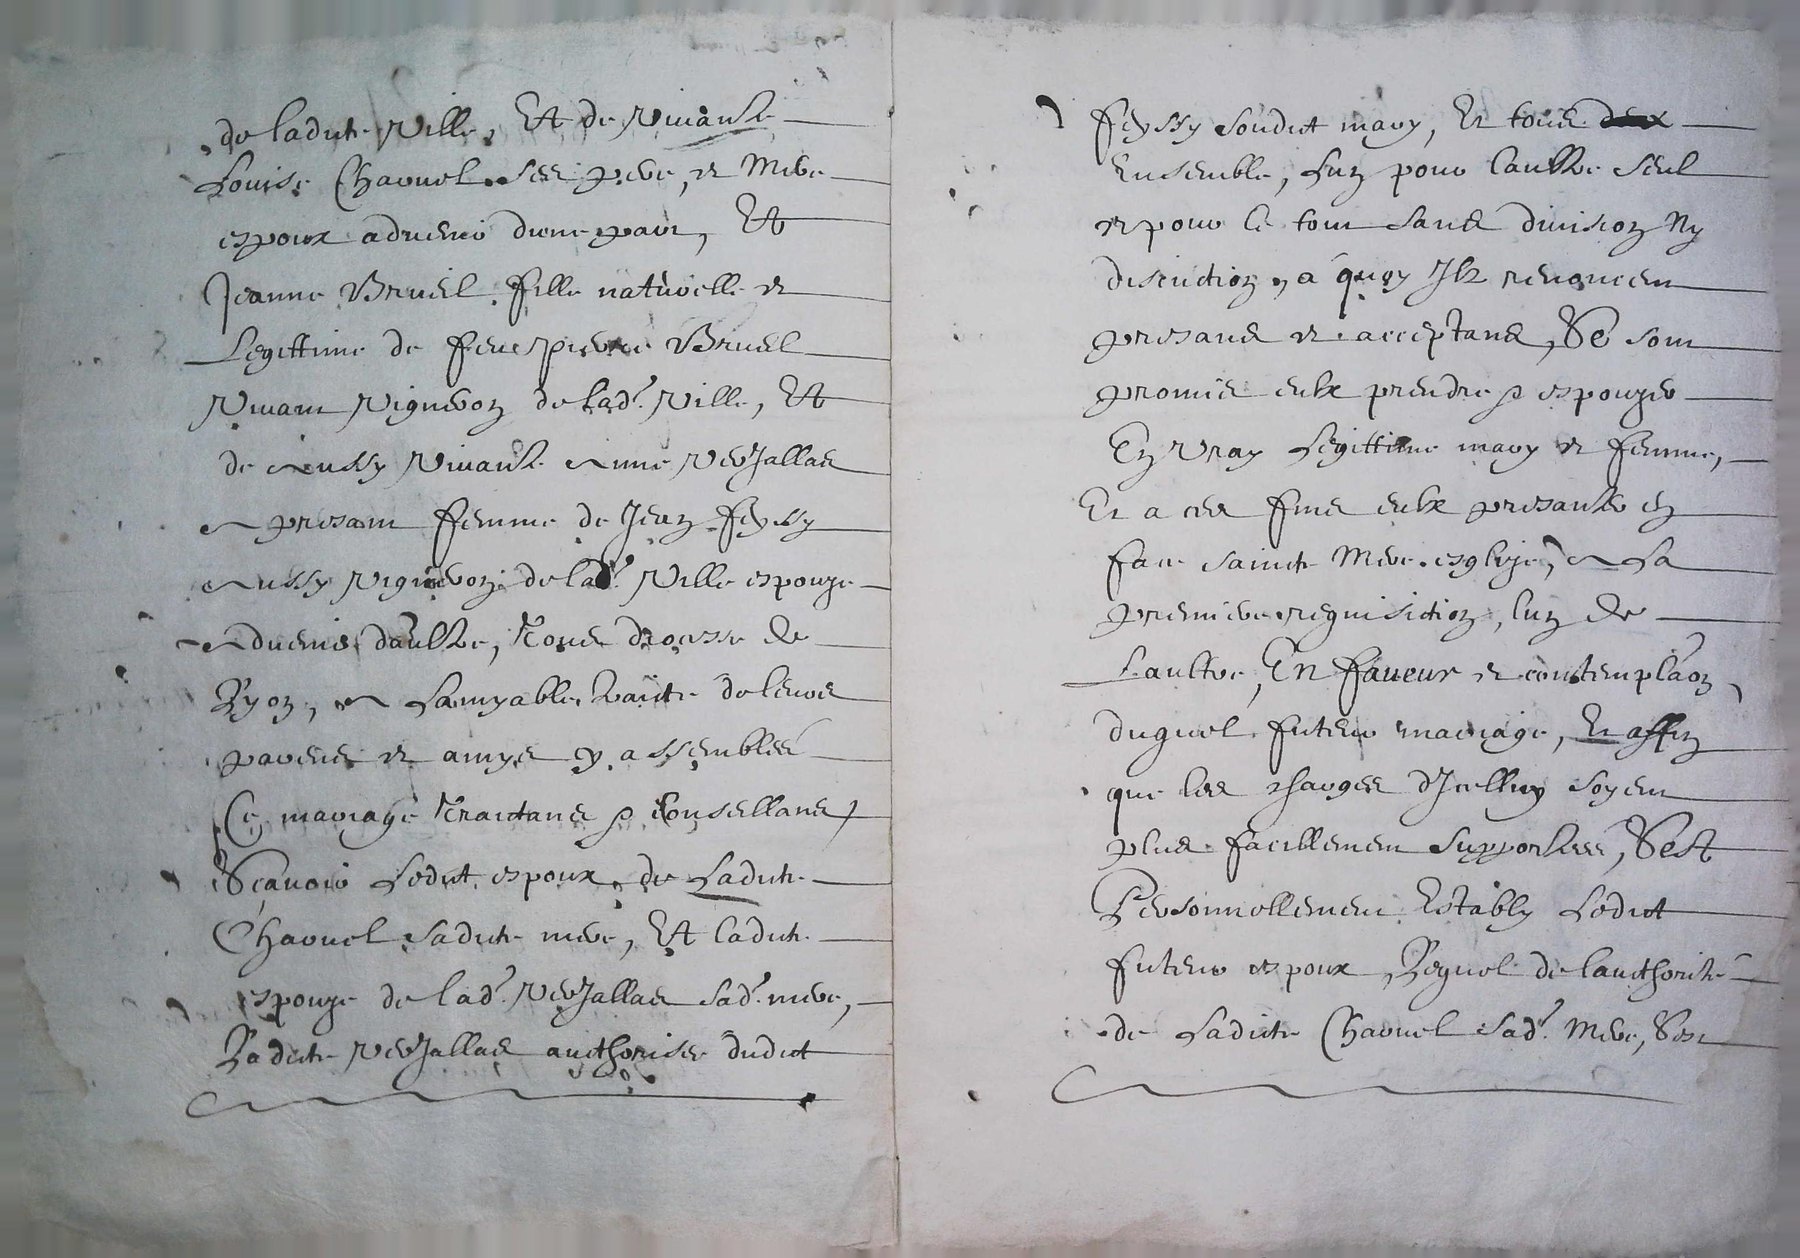 de ladite ville, Et de vivante
Louise Chaouel ses pere, et Mere
espoux advenir d'une part, Et
Jeanne Bruel fille naturelle et
Legittime de feu Pierre Bruel
vivant vigneron de lad.e ville, Et
de aussy vivante Anne Verjallas
a presant femme de Jean feyssy
aussy vigneron de lad.e ville espouze
advenir d'aultre, Tous diocesse de
Ryon, a Lamyable traicte de leurs
parens et amys y assembles
Ce mariage Traictans & Consellans,
Scavoir Ledit espoux de Ladite
Chaouel sadite mere, Et ladite
espouze de lad.e Verjallas sad.e mere,
Ladite Verjallas authorisee dudit
feyssy soudit mary, Et tous
Ensemble, Lun pour laultre seul
et pour le tout sans division Ny
discution, a quoy Ilz renoncent
presans et acceptans, Se sont
promis eulx prendre & espouzer
En vray Legittime mary et femme,
Et a ces fins eulx presanter en
face saincte Mere esglize, a La
premiere requisition, lun de
Laultre, En faveur et contemplaon
duquel futeur mariage, Et affin
que les charges d'Icelluy soyent
plus facillement supportees, Sest
Personnellement Estably Ledit
futeur espoux, Lequel de lauthorite
de Ladite Chaouel sad.e Mere, Sest